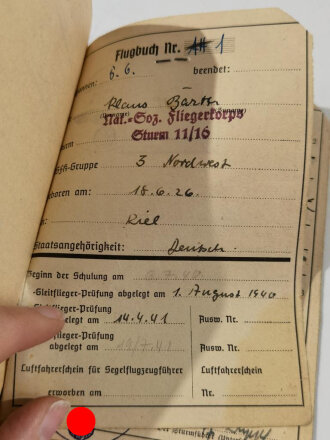 Flugbuch Nr. 1
6. 6. beendet:
Klaus Barth
Nat.-Soz. Fliegerkorps
Sturm 11/16
-Gruppe 3 Nordwest
boren am: 18.6.26.
Kiel
Staatsangehörigkeit: Deutsch.
Beginn der Schulung am
-Gleitflieger-Prüfung abgelegt am 1. August 1940
-Gleitflieger-Prüfung
gelegt am 14.4.41 Ausw. Nr.
flieger-Prüfung
abgelegt am Ausw. Nr.
Luftfahrerschein für Segelflugzeugführer Luftfahrerschein
erworben am Nr.